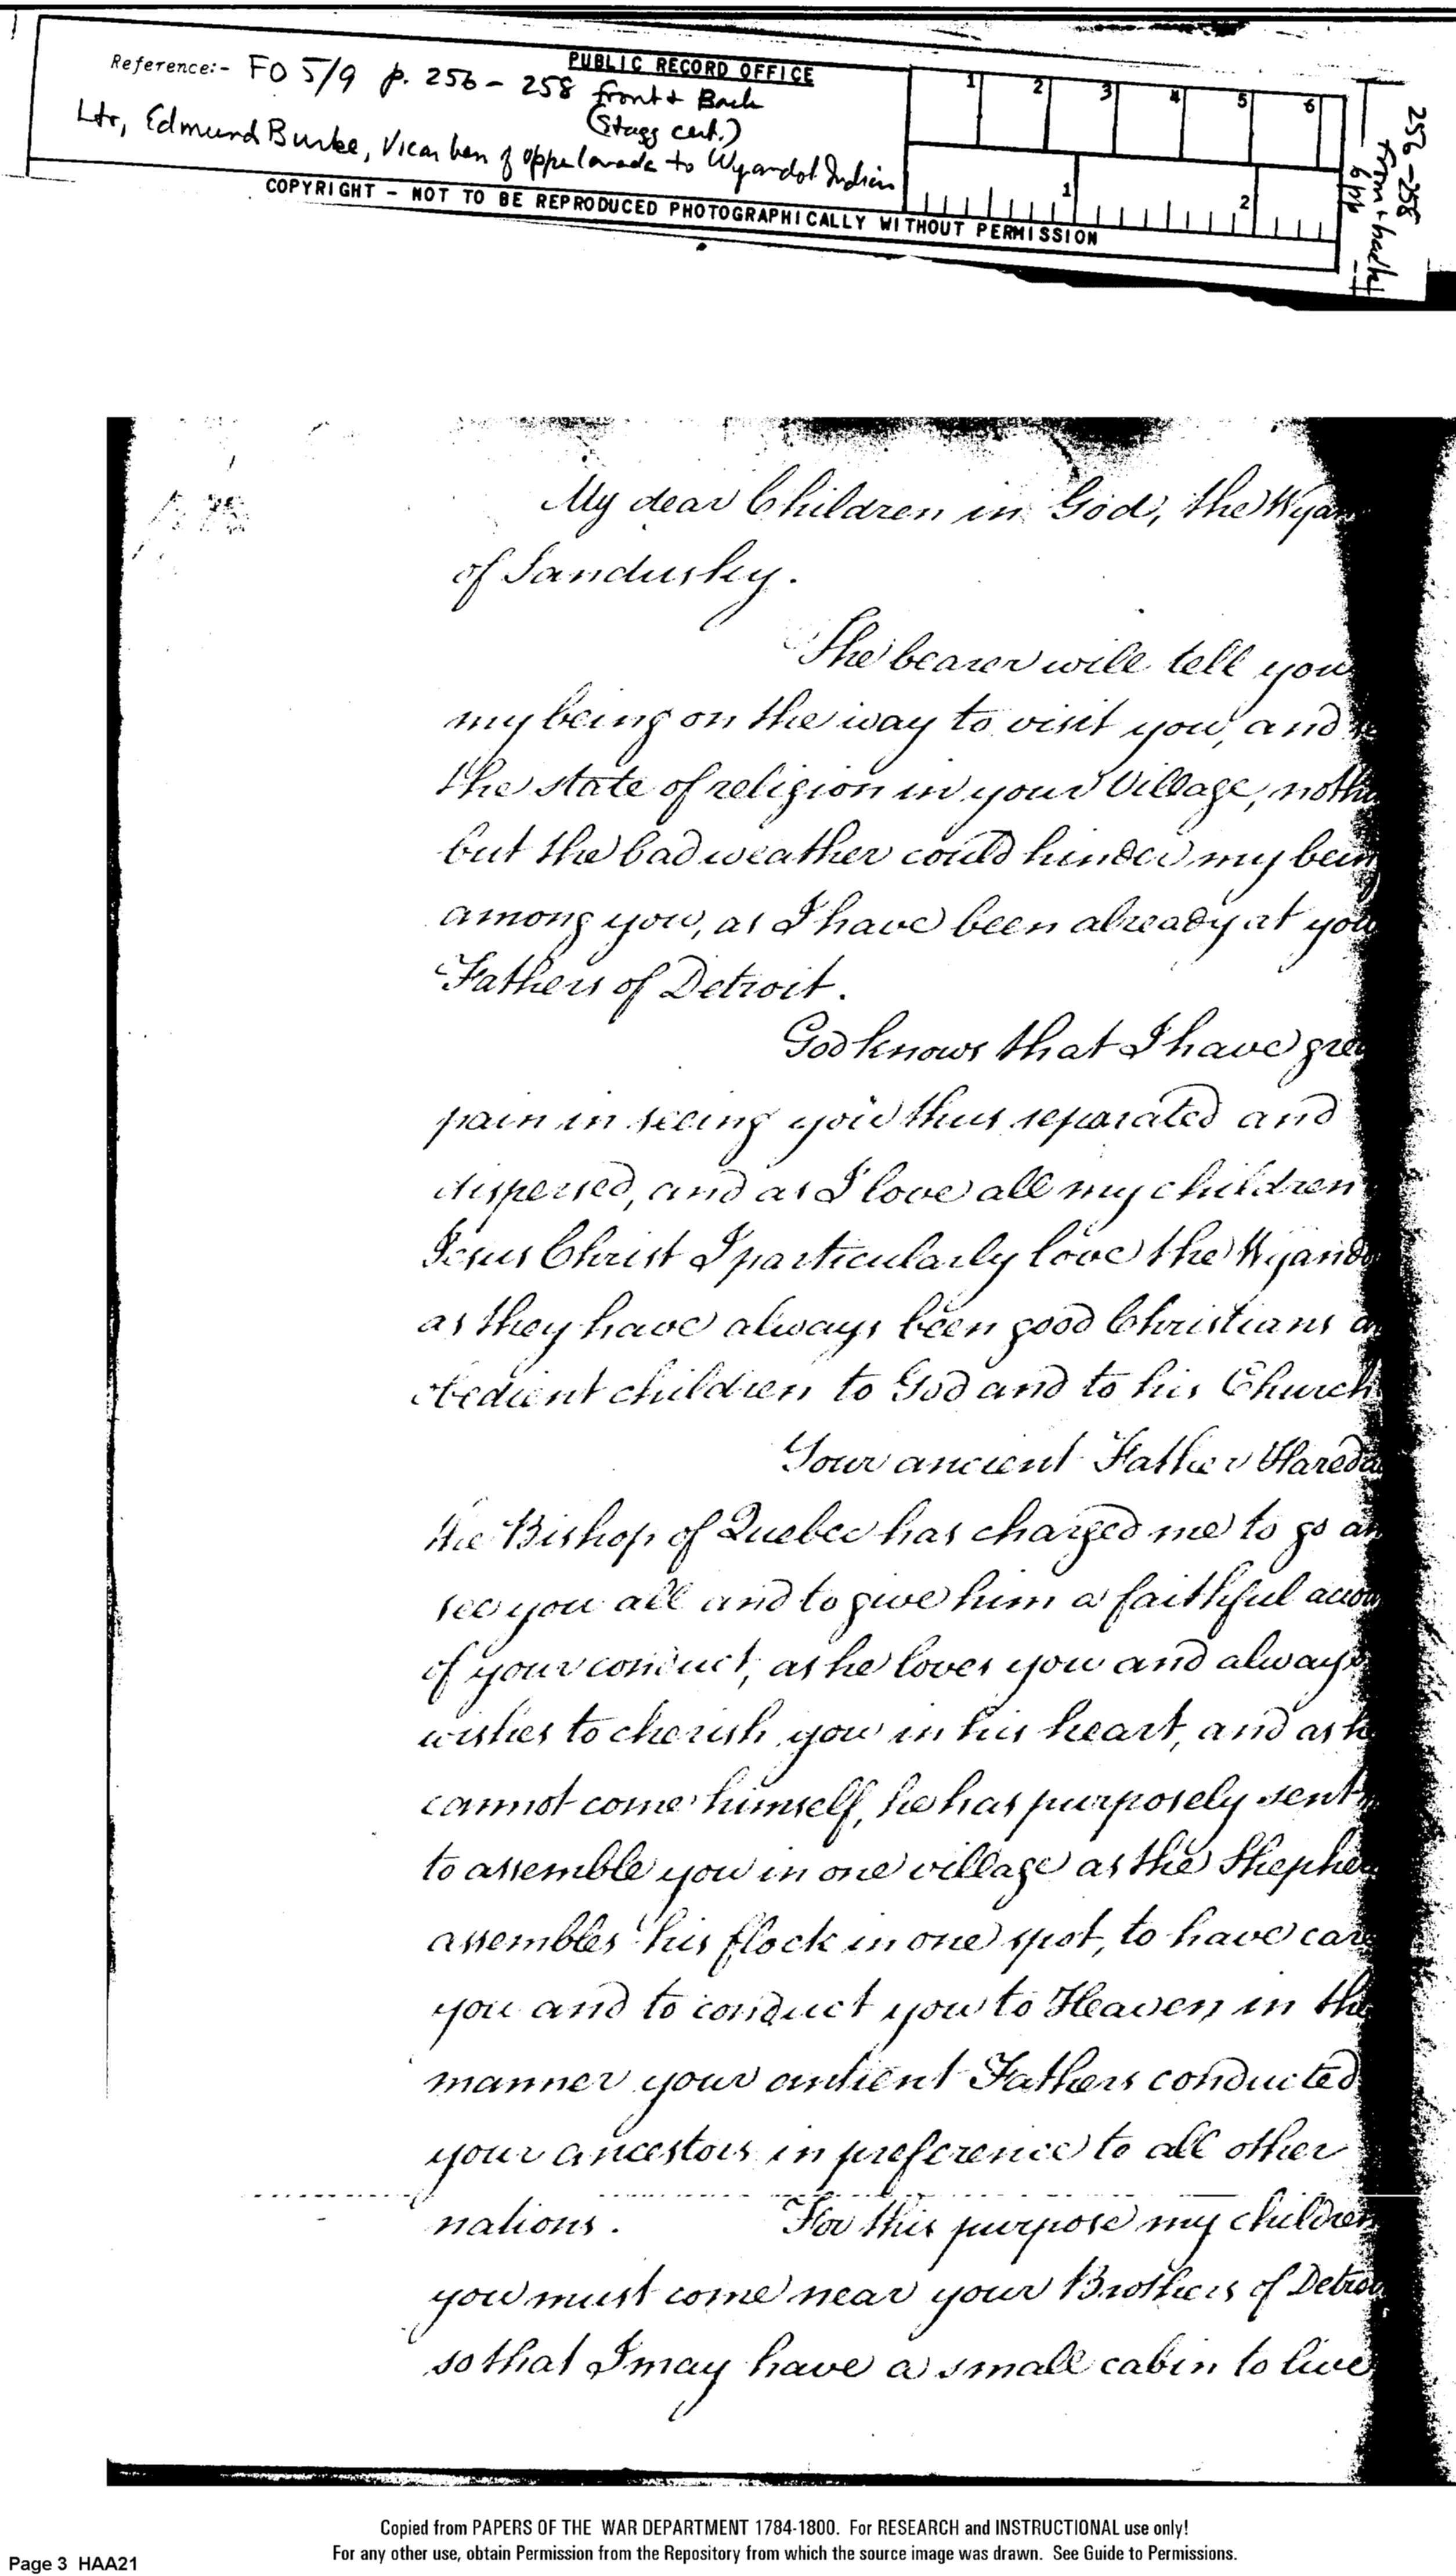 Reference:- FO 5/9 p. 256-258 front & Back
PUBLIC RECORD OFFICE
(Stagg cert.)
Ltr, Edmund Burke, Vicar Gen of upper Canada to Wyandot Indian
COPYRIGHT - NOT TO BE REPRODUCED PHOTOGRAPHICALLY WITHOUT PERMISSION
1 2 3 4 5 6
1 2
256-258
front & back
My dear Children in God, the Wyan
of Sandusky.
The bearer will tell you
my being on the way to visit you, and
the state of religion in your Village, nothi
but the bad weather could hinder my bein
among you, as I have been already at you
Fathers of Detroit.
God knows that I have grea
pain in seeing you thus separated and
dispersed, and as I love all my children
Jesus Christ I particularly love the Wyando
as they have always been good Christians a
obedient children to God and to his Church
Your ancient Father
the Bishop of Quebec has charged me to go an
see you all and to give him a faithful accou
of your conduct, as he loves you and always
wishes to cherish you in his heart, and as h
cannot come himself, he has purposely sent
to assemble you in one village as the Shepher
assembles his flock in one spot, to have care
you and to conduct you to Heaven in the
manner your antient Fathers conducted
your ancestors in preference to all other
nations. For this purpose my children
you must come near your Brothers of Detroi
so that I may have a small cabin to live
Copied from PAPERS OF THE WAR DEPARTMENT 1784-1800. For RESEARCH and INSTRUCTIONAL use only!
For any other use, obtain Permission from the Repository from which the source image was drawn. See Guide to Permissions.
Page 3 HAA21